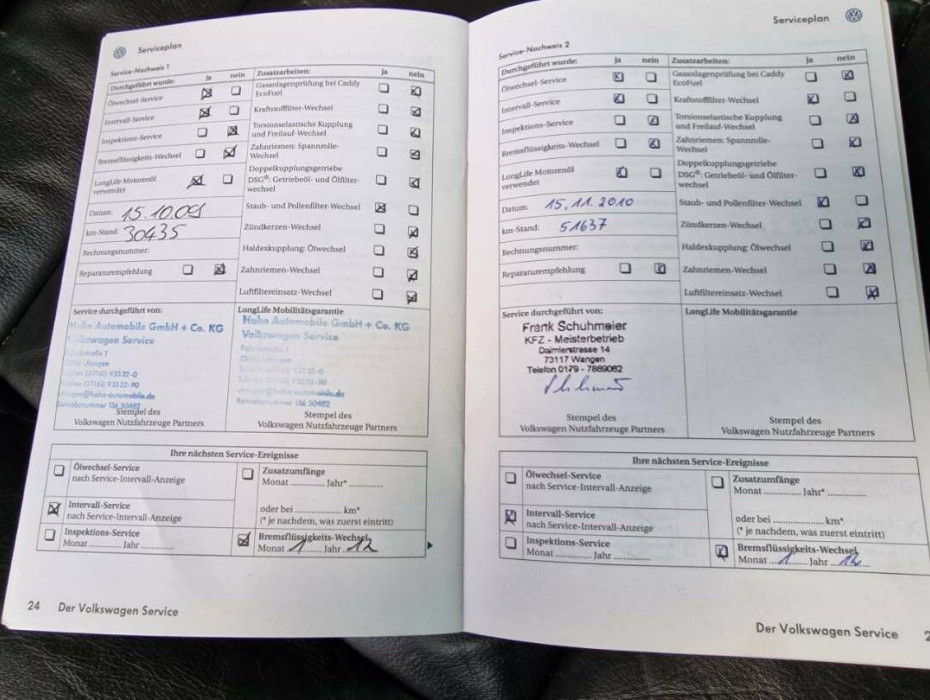 Serviceplan
Service-Nachweis 1
Durchgeführt wurde: ja nein
Ölwechsel-Service
Intervall-Service
Inspektions-Service
Bremsflüssigkeits-Wechsel
LongLife Motorenöl
verwendet
Datum: 15.10.09
km-Stand: 30435
Rechnungsnummer:
Reparaturempfehlung
Zusatzarbeiten: ja nein
Gasanlagenprüfung bei Caddy
EcoFuel
Kraftstofffilter-Wechsel
Torsionselastische Kupplung
und Freilauf-Wechsel
Zahnriemen: Spannrolle-
Wechsel
Doppelkupplungsgetriebe
DSG®: Getriebeöl- und Ölfilter-
wechsel
Staub- und Pollenfilter-Wechsel
Zündkerzen-Wechsel
Haldexkupplung: Ölwechsel
Zahnriemen-Wechsel
Luftfiltereinsatz-Wechsel
Service durchgeführt von:
Hahn Automobile GmbH + Co. KG
Volkswagen Service
Stempel des
Volkswagen Nutzfahrzeuge Partners
LongLife Mobilitätsgarantie
Hahn Automobile GmbH + Co. KG
Volkswagen Service
Stempel des
Volkswagen Nutzfahrzeuge Partners
Ihre nächsten Service-Ereignisse
Ölwechsel-Service
nach Service-Intervall-Anzeige
Intervall-Service
nach Service-Intervall-Anzeige
Inspektions-Service
Monat ........... Jahr ............
Zusatzumfänge
Monat ............ Jahr* ............
oder bei ......................... km*
(* je nachdem, was zuerst eintritt)
Bremsflüssigkeits-Wechsel
Monat 1 Jahr 12
24 Der Volkswagen Service
Serviceplan
Service-Nachweis 2
Durchgeführt wurde: ja nein
Ölwechsel-Service
Intervall-Service
Inspektions-Service
Bremsflüssigkeits-Wechsel
LongLife Motorenöl
verwendet
Datum: 15.11.2010
km-Stand: 51637
Rechnungsnummer:
Reparaturempfehlung
Zusatzarbeiten: ja nein
Gasanlagenprüfung bei Caddy
EcoFuel
Kraftstofffilter-Wechsel
Torsionselastische Kupplung
und Freilauf-Wechsel
Zahnriemen: Spannrolle-
Wechsel
Doppelkupplungsgetriebe
DSG®: Getriebeöl- und Ölfilter-
wechsel
Staub- und Pollenfilter-Wechsel
Zündkerzen-Wechsel
Haldexkupplung: Ölwechsel
Zahnriemen-Wechsel
Luftfiltereinsatz-Wechsel
Service durchgeführt von:
Frank Schuhmeier
KFZ - Meisterbetrieb
Daimlerstrasse 14
73117 Wangen
Telefon 0179 - 7889062
Stempel des
Volkswagen Nutzfahrzeuge Partners
LongLife Mobilitätsgarantie
Stempel des
Volkswagen Nutzfahrzeuge Partners
Ihre nächsten Service-Ereignisse
Ölwechsel-Service
nach Service-Intervall-Anzeige
Intervall-Service
nach Service-Intervall-Anzeige
Inspektions-Service
Monat ........... Jahr ............
Zusatzumfänge
Monat ............ Jahr* ............
oder bei ......................... km*
(* je nachdem, was zuerst eintritt)
Bremsflüssigkeits-Wechsel
Monat 1 Jahr 12
Der Volkswagen Service